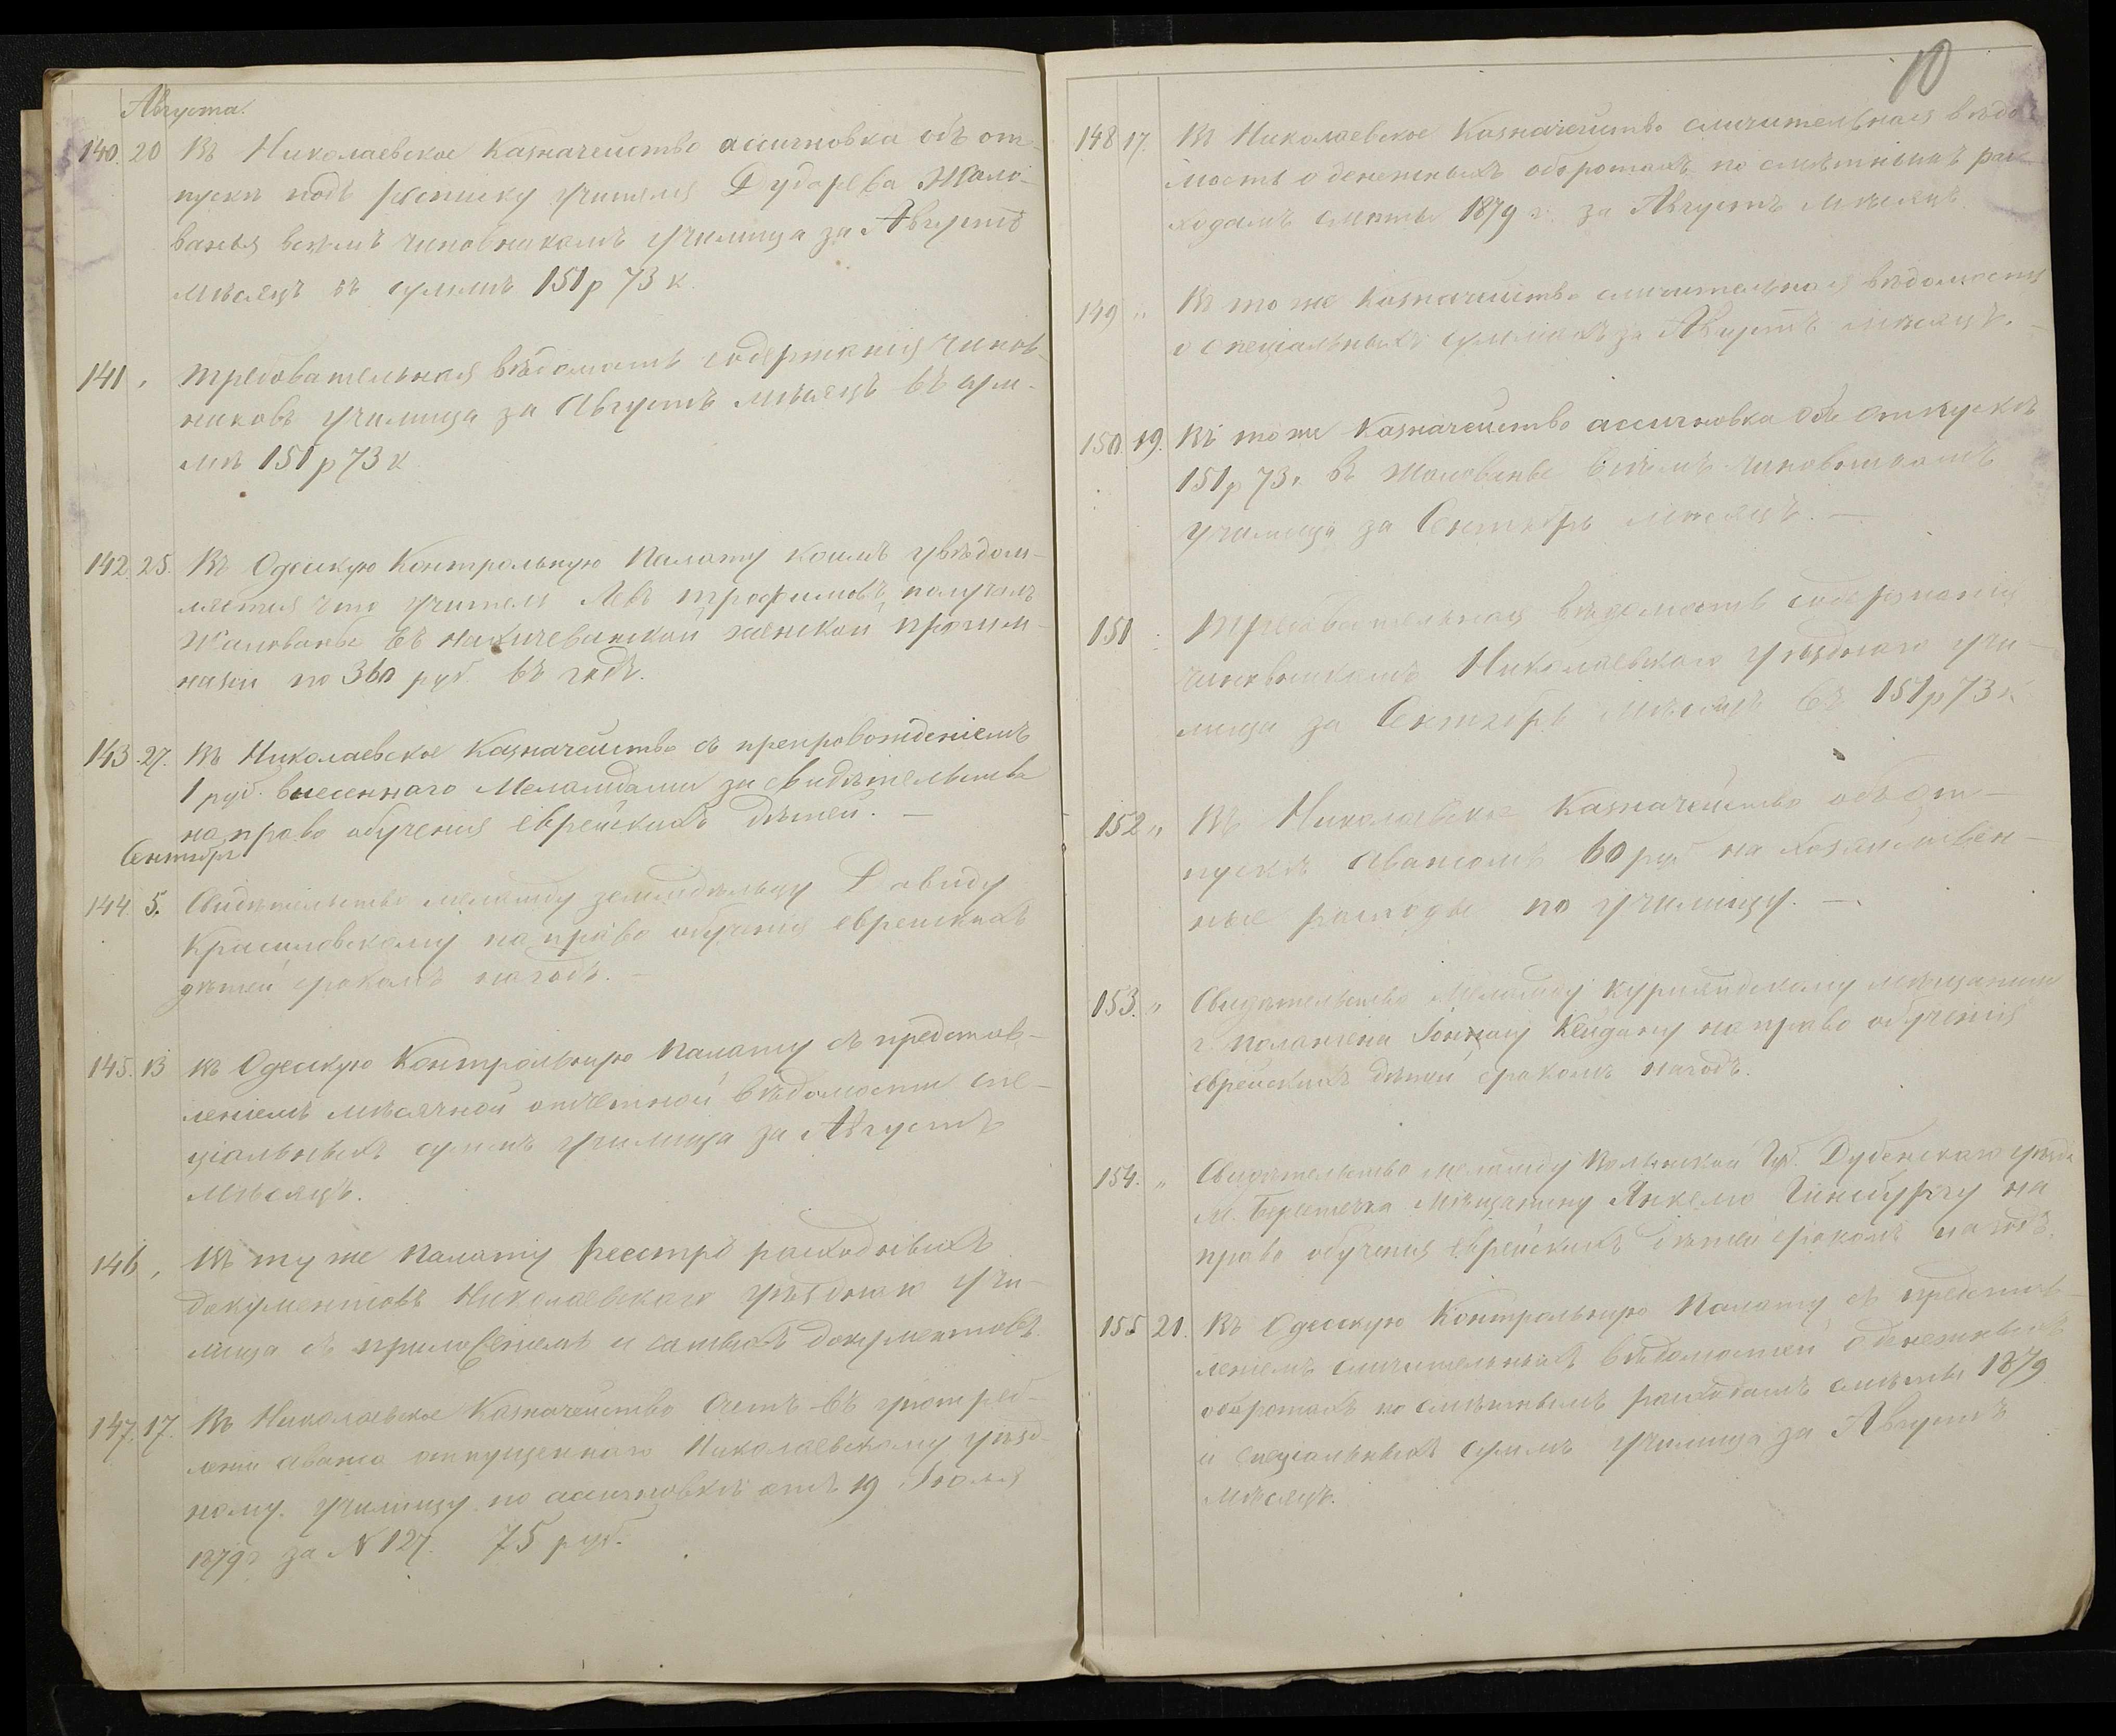 Августа.
140. 20 Въ Николаевское Казначейство ассигновка объ от-
пускѣ подъ росписку учителя Дударева жало-
ванья всѣмъ чиновникамъ училища за Августъ
мѣсяцъ въ суммѣ 151 р 73 к.
141 „ Требовательная вѣдомость содержанія чинов-
никовъ училища за Августъ мѣсяцъ въ сум-
мѣ 151 р 73 к
142. 25. Въ Одескую Контрольную Палату коимъ увѣдом-
ляется что учитель Левъ Трофимовъ получалъ
жалованье въ Нахичеванской женской прогим-
назіи по 360 руб въ годъ.
143. 27. Въ Николаевское Казначейство съ препровожденіемъ
1 руб. внесеннаго Меламдами за свидѣтельства
на право обученія еврейскихъ дѣтей. —
Сентябрь
144. 5. Свидѣтельство меламду земледѣльцу Давиду
Красиловскому на право обученія еврейскихъ
дѣтей срокомъ на годъ. —
145. 13 въ Одескую Контрольную Палату съ представ-
леніемъ мѣсячной отчетной вѣдомости спе-
ціальныхъ суммъ училища за Августъ
мѣсяцъ.
146 „ Въ ту же Палату реестръ расходныхъ
документовъ Николаевскаго уѣзднаго учи-
лища съ приложеніемъ и самыхъ документовъ.
147. 17. Въ Николаевское Казначейство счетъ въ употреб-
леніи аванса отпущеннаго Николаевскому уѣзд-
ному училищу по ассигновкѣ отъ 19 Іюля
1879 г за N 127. 75 руб.
10
148 17. Въ Николаевское Казначейство сличительная вѣдо-
мость о денежныхъ оборотахъ по смѣтнымъ рас-
ходамъ смѣты 1879 г. за Августъ мѣсяцъ.
149 „ Въ то же Казначейство сличительная вѣдомость
о спеціальныхъ суммахъ за Августъ мѣсяцъ. —
150. 19. Въ то же Казначейство ассигновка объ отпускѣ
151 р 73 к въ жалованье всѣмъ чиновникамъ
училища за Сентябрь мѣсяцъ. —
151 „ Требовательная вѣдомость содержанія
чиновникамъ Николаевскаго уѣзднаго учи-
лища за Сентябрь мѣсяцъ въ 151 р 73 к
152 „ Въ Николаевское Казначейство объ от-
пускѣ авансомъ 60 руб на хозяйствен-
ные расходы по училищу. —
153. „ Свидѣтельство меламду курляндскому мѣщанину
г. Полангена Кейдану на право обученія
еврейскихъ дѣтей срокомъ на годъ.
154. „ Свидѣтельство меламду Волынской Губ. Дубенскаго уѣзда
м. Берестечка мѣщанину Янкелю Гинсбургу на
право обученія еврейскихъ дѣтей срокомъ на годъ.
155 21. Въ Одесскую Контрольную Палату съ представ-
леніемъ сличительныхъ вѣдомостей о денежныхъ
оборотахъ по смѣтнымъ расходамъ смѣты 1879
и спеціальныхъ суммъ училища за Августъ
мѣсяцъ.